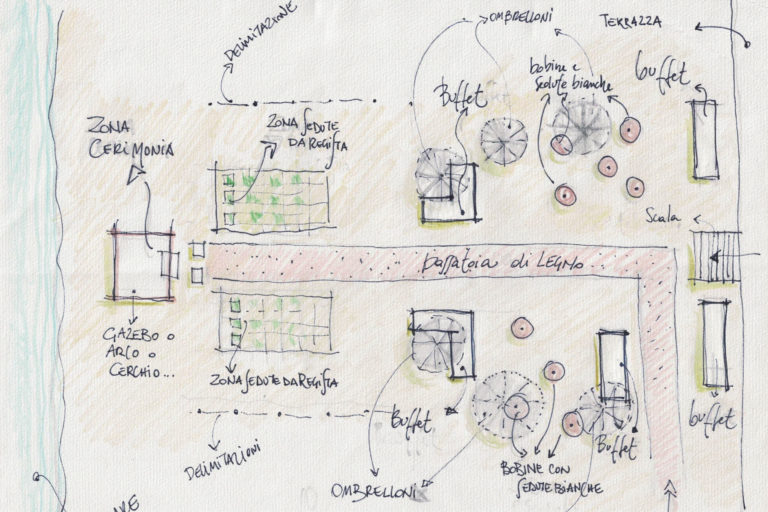 DELIMITAZIONE
OMBRELLONI
TERRAZZA
bobine e
sedute bianche
buffet
Buffet
ZONA
CERIMONIA
ZONA SEDUTE
DA REGISTA
Scala
passatoia di LEGNO
GAZEBO o
ARCO o
CERCHIO...
ZONA SEDUTE DA REGISTA
Buffet
Buffet
buffet
DELIMITAZIONI
OMBRELLONI
BOBINE CON
SEDUTE BIANCHE